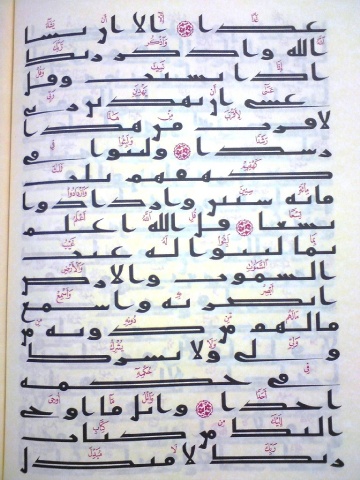 غدا ۝ الا ان يشا
الله واذكر ربك
اذا نسيت وقل
عسى ان يهدين ربي
لاقرب من هذا
رشدا ۝ ولبثوا في
كهفهم ثلث
مائة سنين وازدادوا
تسعا ۝ قل الله اعلم
بما لبثوا له غيب
السموت والارض
ابصر به واسمع
ما لهم من دونه من
ولي ولا يشرك
في حكمه
احدا ۝ واتل ما اوحي
اليك من كتاب
ربك لا مبدل